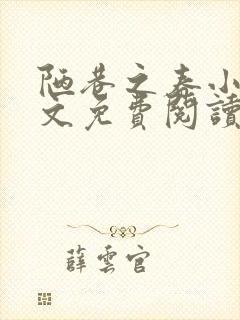 陋巷之春小
文免費閱讀
薛雲官